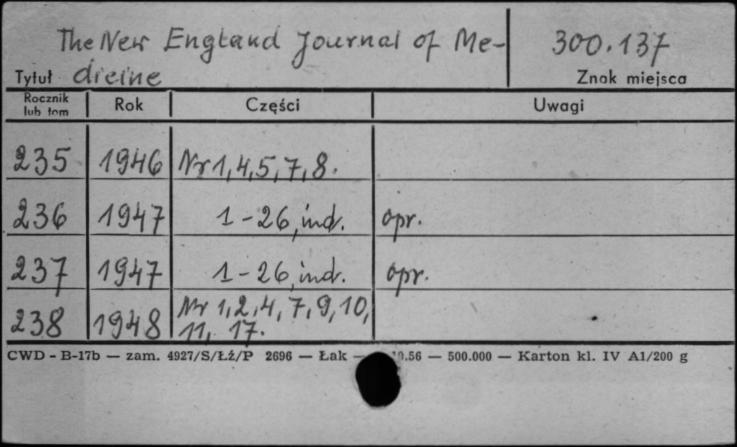 The New England Journal of Me- 300.137
Tytuł dicine Znak miejsca
Rocznik lub tom Rok Części Uwagi
235 1946 Nr 1,4,5,7,8.
236 1947 1-26, ind. opr.
237 1947 1-26, ind. opr.
238 1948 Nr 1,2,4,7,9,10,
11, 17.
CWD - B-17b — zam. 4927/S/Łż/P 2696 — Łak — .56 — 500.000 — Karton kl. IV A1/200 g